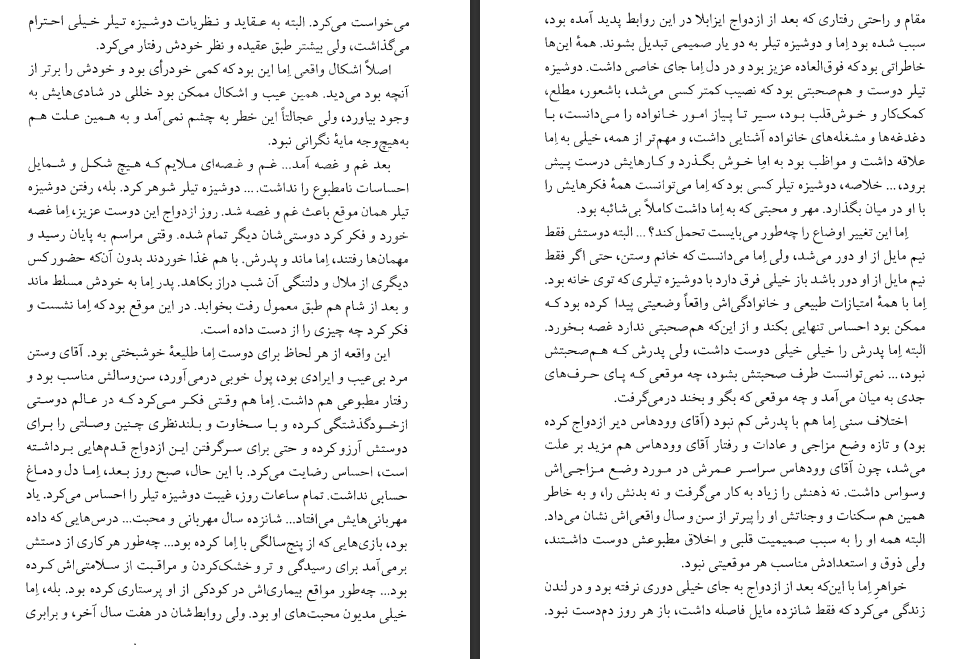 می‌خواست می‌کرد. البته به عقاید و نظریات دوشیزه تیلر خیلی احترام
می‌گذاشت، ولی بیشتر طبق عقیده و نظر خودش رفتار می‌کرد.
اصلاً اشکال واقعی اِما این بود که کمی خودرأی بود و خودش را برتر از
آنچه بود می‌دید. همین عیب و اشکال ممکن بود خللی در شادی‌هایش به
وجود بیاورد، ولی عجالتاً این خطر به چشم نمی‌آمد و به همین علت هم
به‌هیچ‌وجه مایهٔ نگرانی نبود.
بعد غم و غصه آمد... غم و غصه‌ای ملایم که هیچ شکل و شمایل
احساسات نامطبوع را نداشت. ... دوشیزه تیلر شوهر کرد. بله، رفتن دوشیزه
تیلر همان موقع باعث غم و غصه شد. روز ازدواج این دوست عزیز، اِما غصه
خورد و فکر کرد دوستی‌شان دیگر تمام شده. وقتی مراسم به پایان رسید و
مهمان‌ها رفتند، اِما ماند و پدرش. با هم غذا خوردند بدون آن‌که حضور کس
دیگری از ملال و دلتنگی آن شب دراز بکاهد. پدر اِما به خودش مسلط ماند
و بعد از شام هم طبق معمول رفت بخوابد. در این موقع بود که اِما نشست و
فکر کرد چه چیزی را از دست داده است.
این واقعه از هر لحاظ برای دوست اِما طلیعهٔ خوشبختی بود. آقای وستن
مرد بی‌عیب و ایرادی بود، پول خوبی درمی‌آورد، سن‌وسالش مناسب بود و
رفتار مطبوعی هم داشت. اِما هم وقتی فکر می‌کرد که در عالم دوستی
ازخودگذشتگی کرده و با سخاوت و بلندنظری چنین وصلتی را برای
دوستش آرزو کرده و حتی برای سرگرفتن این ازدواج قدم‌هایی برداشته
است، احساس رضایت می‌کرد. با این حال، صبح روز بعد، اِما دل و دماغ
حسابی نداشت. تمام ساعات روز، غیبت دوشیزه تیلر را احساس می‌کرد. یاد
مهربانی‌هایش می‌افتاد... شانزده سال مهربانی و محبت... درس‌هایی که داده
بود، بازی‌هایی که از پنج‌سالگی با اِما کرده بود... چه‌طور هر کاری از دستش
برمی‌آمد برای رسیدگی و تر و خشک‌کردن و مراقبت از سلامتی‌اش کرده
بود... چه‌طور مواقع بیماری‌اش در کودکی از او پرستاری کرده بود. بله، اِما
خیلی مدیون محبت‌های او بود. ولی روابط‌شان در هفت سال آخر، و برابری
مقام و راحتی رفتاری که بعد از ازدواج ایزابلا در این روابط پدید آمده بود،
سبب شده بود اِما و دوشیزه تیلر به دو یار صمیمی تبدیل بشوند. همهٔ این‌ها
خاطراتی بود که فوق‌العاده عزیز بود و در دل اِما جای خاصی داشت. دوشیزه
تیلر دوست و هم‌صحبتی بود که نصیب کمتر کسی می‌شد، باشعور، مطلع،
کمک‌کار و خوش‌قلب بود، سیر تا پیاز امور خانواده را می‌دانست، با
دغدغه‌ها و مشغله‌های خانواده آشنایی داشت، و مهم‌تر از همه، خیلی به اِما
علاقه داشت و مواظب بود به اِما خوش بگذرد و کارهایش درست پیش
برود، ... خلاصه، دوشیزه تیلر کسی بود که اِما می‌توانست همهٔ فکرهایش را
با او در میان بگذارد. مهر و محبتی که به اِما داشت کاملاً بی‌شائبه بود.
اِما این تغییر اوضاع را چه‌طور می‌بایست تحمل کند؟ ... البته دوستش فقط
نیم مایل از او دور می‌شد، ولی اِما می‌دانست که خانم وستن، حتی اگر فقط
نیم مایل از او دور باشد باز خیلی فرق دارد با دوشیزه تیلری که توی خانه بود.
اِما با همهٔ امتیازات طبیعی و خانوادگی‌اش واقعاً وضعیتی پیدا کرده بود که
ممکن بود احساس تنهایی بکند و از این‌که هم‌صحبتی ندارد غصه بخورد.
البته اِما پدرش را خیلی خیلی دوست داشت، ولی پدرش که هم‌صحبتش
نبود، ... نمی‌توانست طرف صحبتش بشود، چه موقعی که پای حرف‌های
جدی به میان می‌آمد و چه موقعی که بگو و بخند درمی‌گرفت.
اختلاف سنی اِما هم با پدرش کم نبود (آقای وودهاس دیر ازدواج کرده
بود) و تازه وضع مزاجی و عادات و رفتار آقای وودهاس هم مزید بر علت
می‌شد، چون آقای وودهاس سراسر عمرش در مورد وضع مزاجی‌اش
وسواس داشت. نه ذهنش را زیاد به کار می‌گرفت و نه بدنش را، و به خاطر
همین هم سکنات و وجناتش او را پیرتر از سن و سال واقعی‌اش نشان می‌داد.
البته همه او را به سبب صمیمیت قلبی و اخلاق مطبوعش دوست داشتند،
ولی ذوق و استعدادش مناسب هر موقعیتی نبود.
خواهرِ اِما با این‌که بعد از ازدواج به جای خیلی دوری نرفته بود و در لندن
زندگی می‌کرد که فقط شانزده مایل فاصله داشت، باز هر روز دم‌دست نبود.